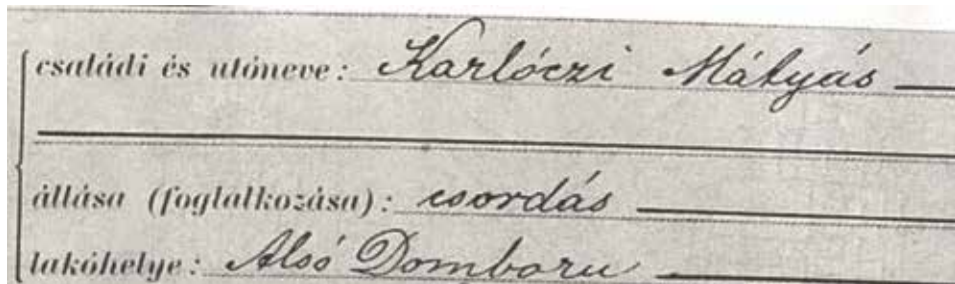 családi és utóneve: Karlóczi Mátyás
állása (foglalkozása): csordás
lakóhelye: Alsó Domboru